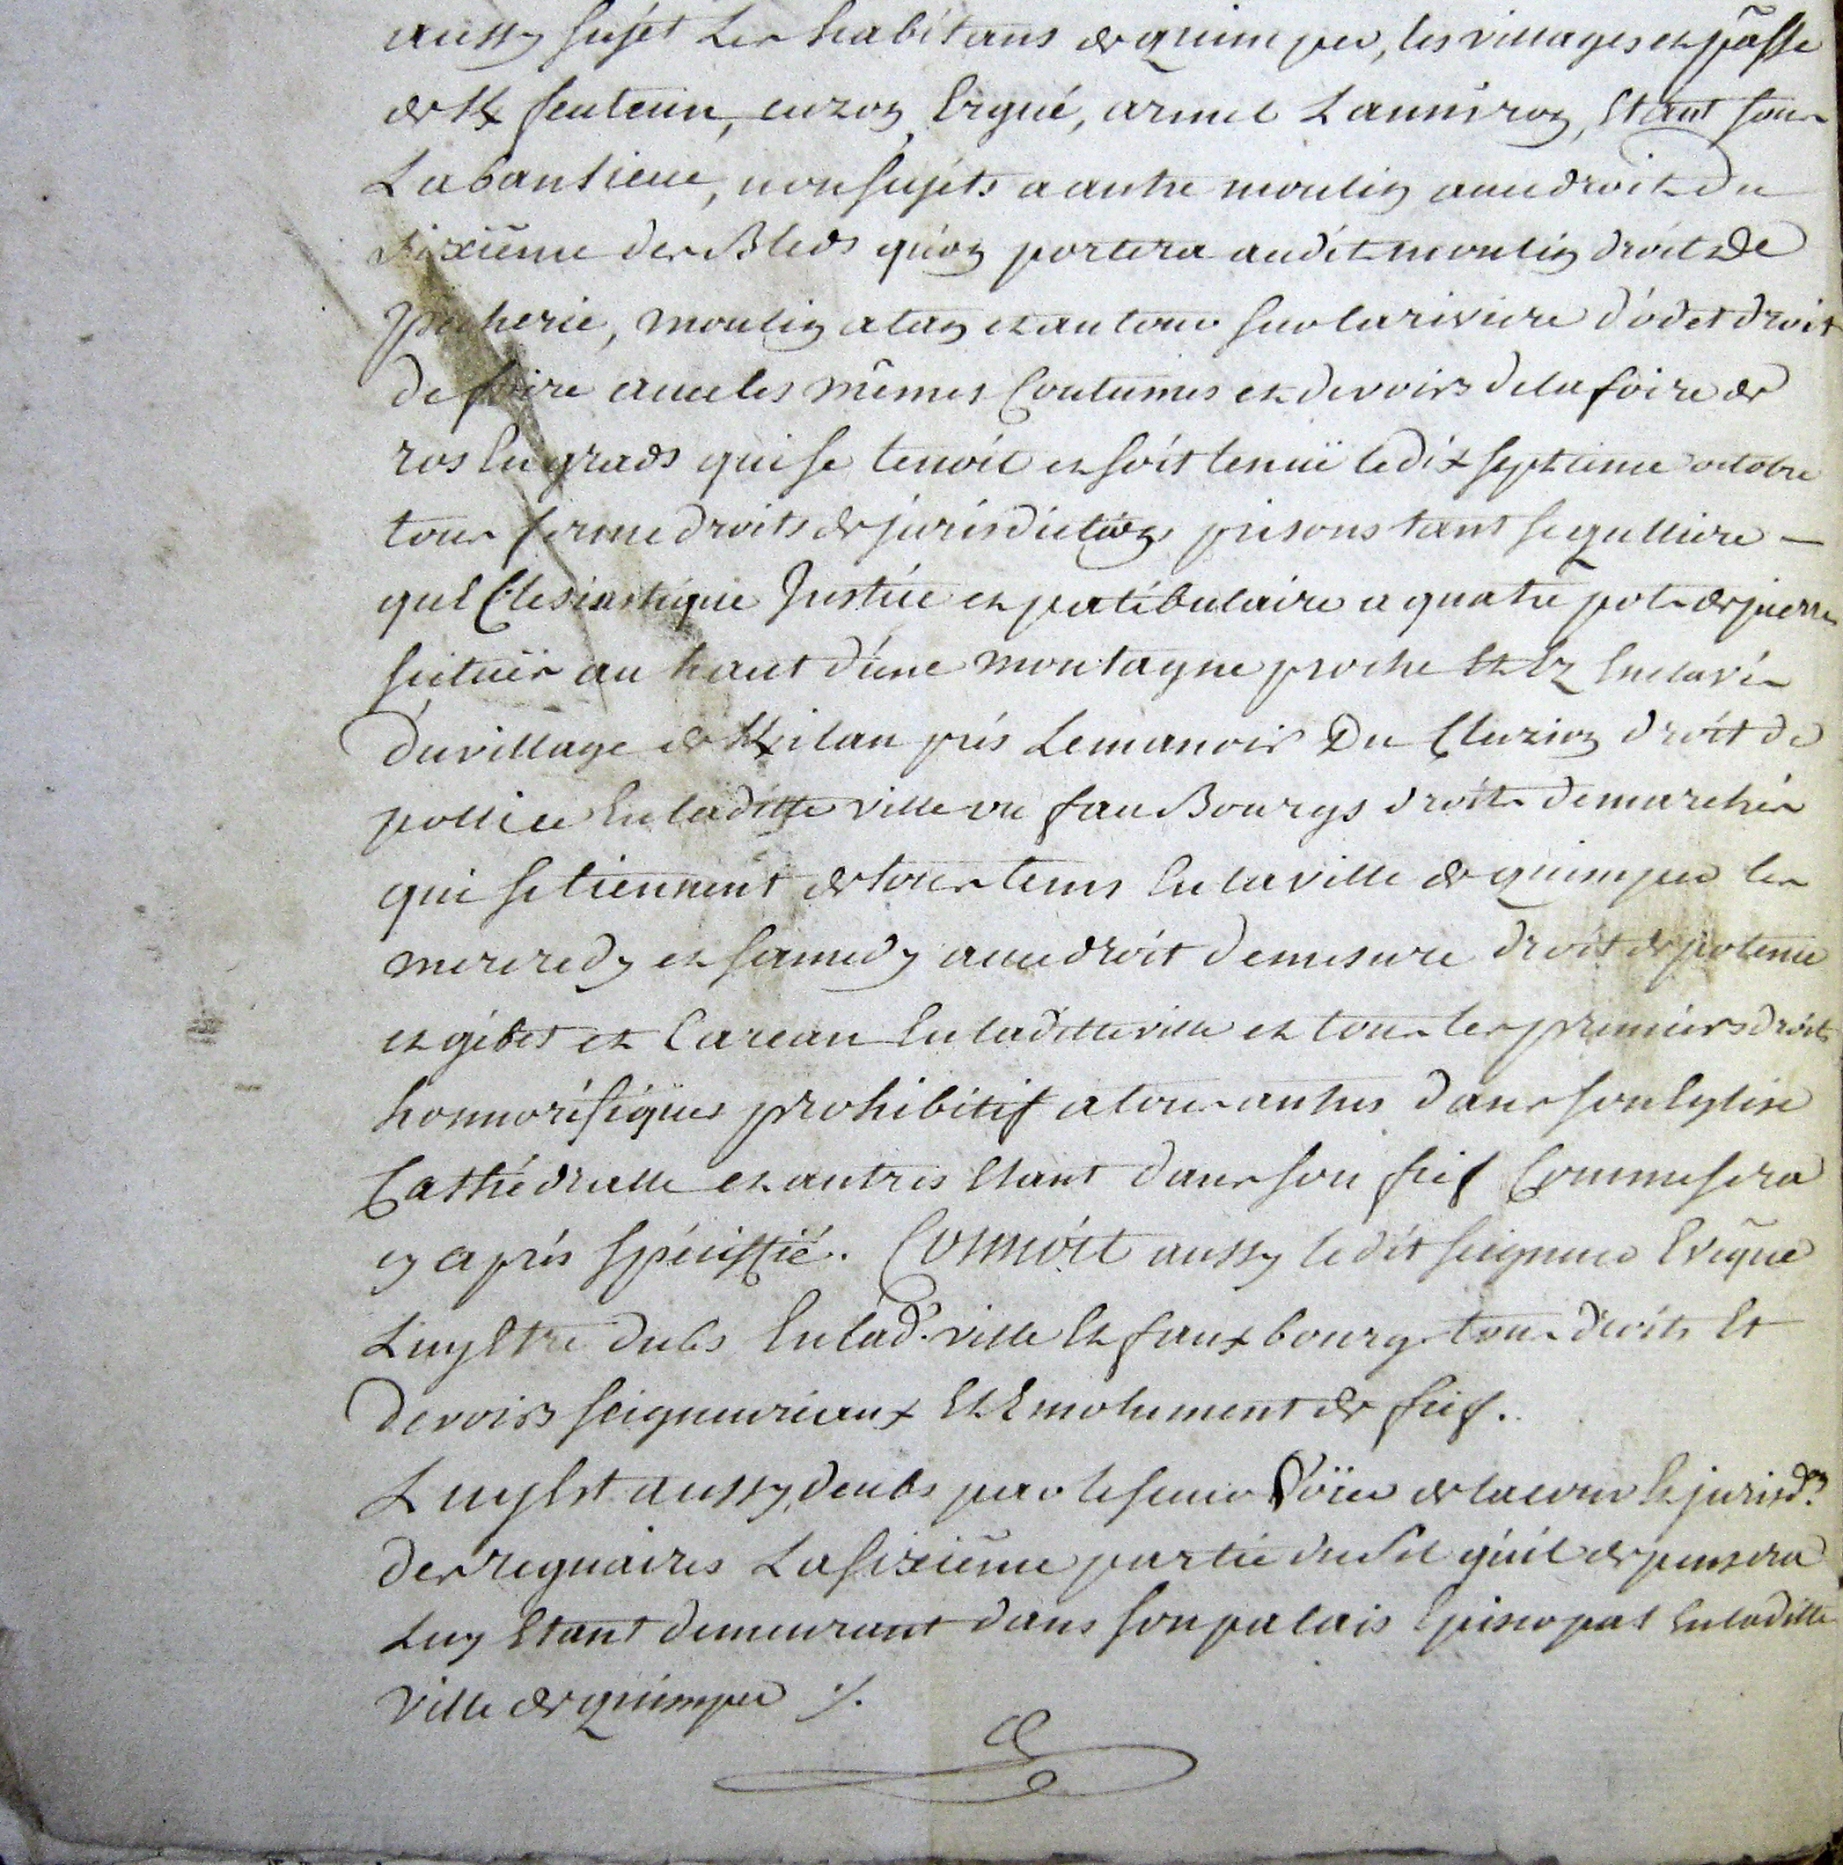 aussy sujét Les habitans de quimper, les villages et parsse
de K feuteun, cuzon Ergué, armel Lanniron, Etant sous
La banlieue, non sujéts a autre moulin avec droit Du
sixiéme des Bleds qu'on portera audit moulin droit De
pecherie, moulin a tan et autour sur la riviere d'ódet droit
de foire avec les mémes Coutumes et devoirs de la foire de
ros En grads qui se tenoit et soit tenuë le dix septieme octobre
tour ferme droits de jurisdiction prisons tant segulliere –
qu'Eclesiastique Justice et patibulaire a quatre pots de pierre
sictuës au haut d'une montagne proche Et Ez Enclavés
du village de Kilan prés Le manoir Du Cluziou droit de
pollice En laditte ville ou faux Bourgs droits de marchés
qui se tiennent de tous tems En la ville de quimper les
mercredy et samedy avec droit de mesure droit de potence
et gibet et Carcan En laditte ville et tous les premiers droits
honnorifiques prohibitif a tous autres dans son Eglise
Cathédralle et autres Etant dans son fief Comme sera
cy aprés spéciffié. Connoit aussy ledit seigneur Evéque
Luy Etre dubs En lad. ville Et faux bourgs tous droits Et
devoirs seigneuriaux Et Emolument de fief.
Luy Est aussy deubs par le sieur Voïer de la cour Et jurisd.on
des reguaires La sixiéme partie du sel qu'il depensera
Luy Etant demeurant dans son palais Episcopal En laditte
Ville de quimper ./.